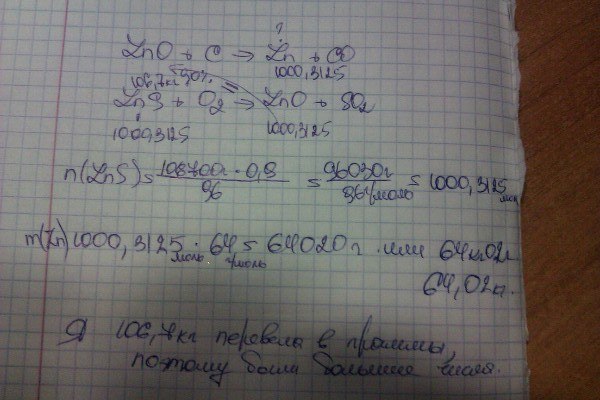 ?
ZnO + C → Zn + CO
106,7кг 90% 1000,3125
ZnS + O₂ → ZnO + SO₂
1000,3125 1000,3125
n(ZnS) = 106700г · 0,9 / 96 = 96030г / 96г/моль = 1000,3125 моль
m(Zn) 1000,3125 моль · 64 г/моль = 64020 г или
64,02кг.
Я 106,7кг перевела в граммы,
поэтому были большие числа.